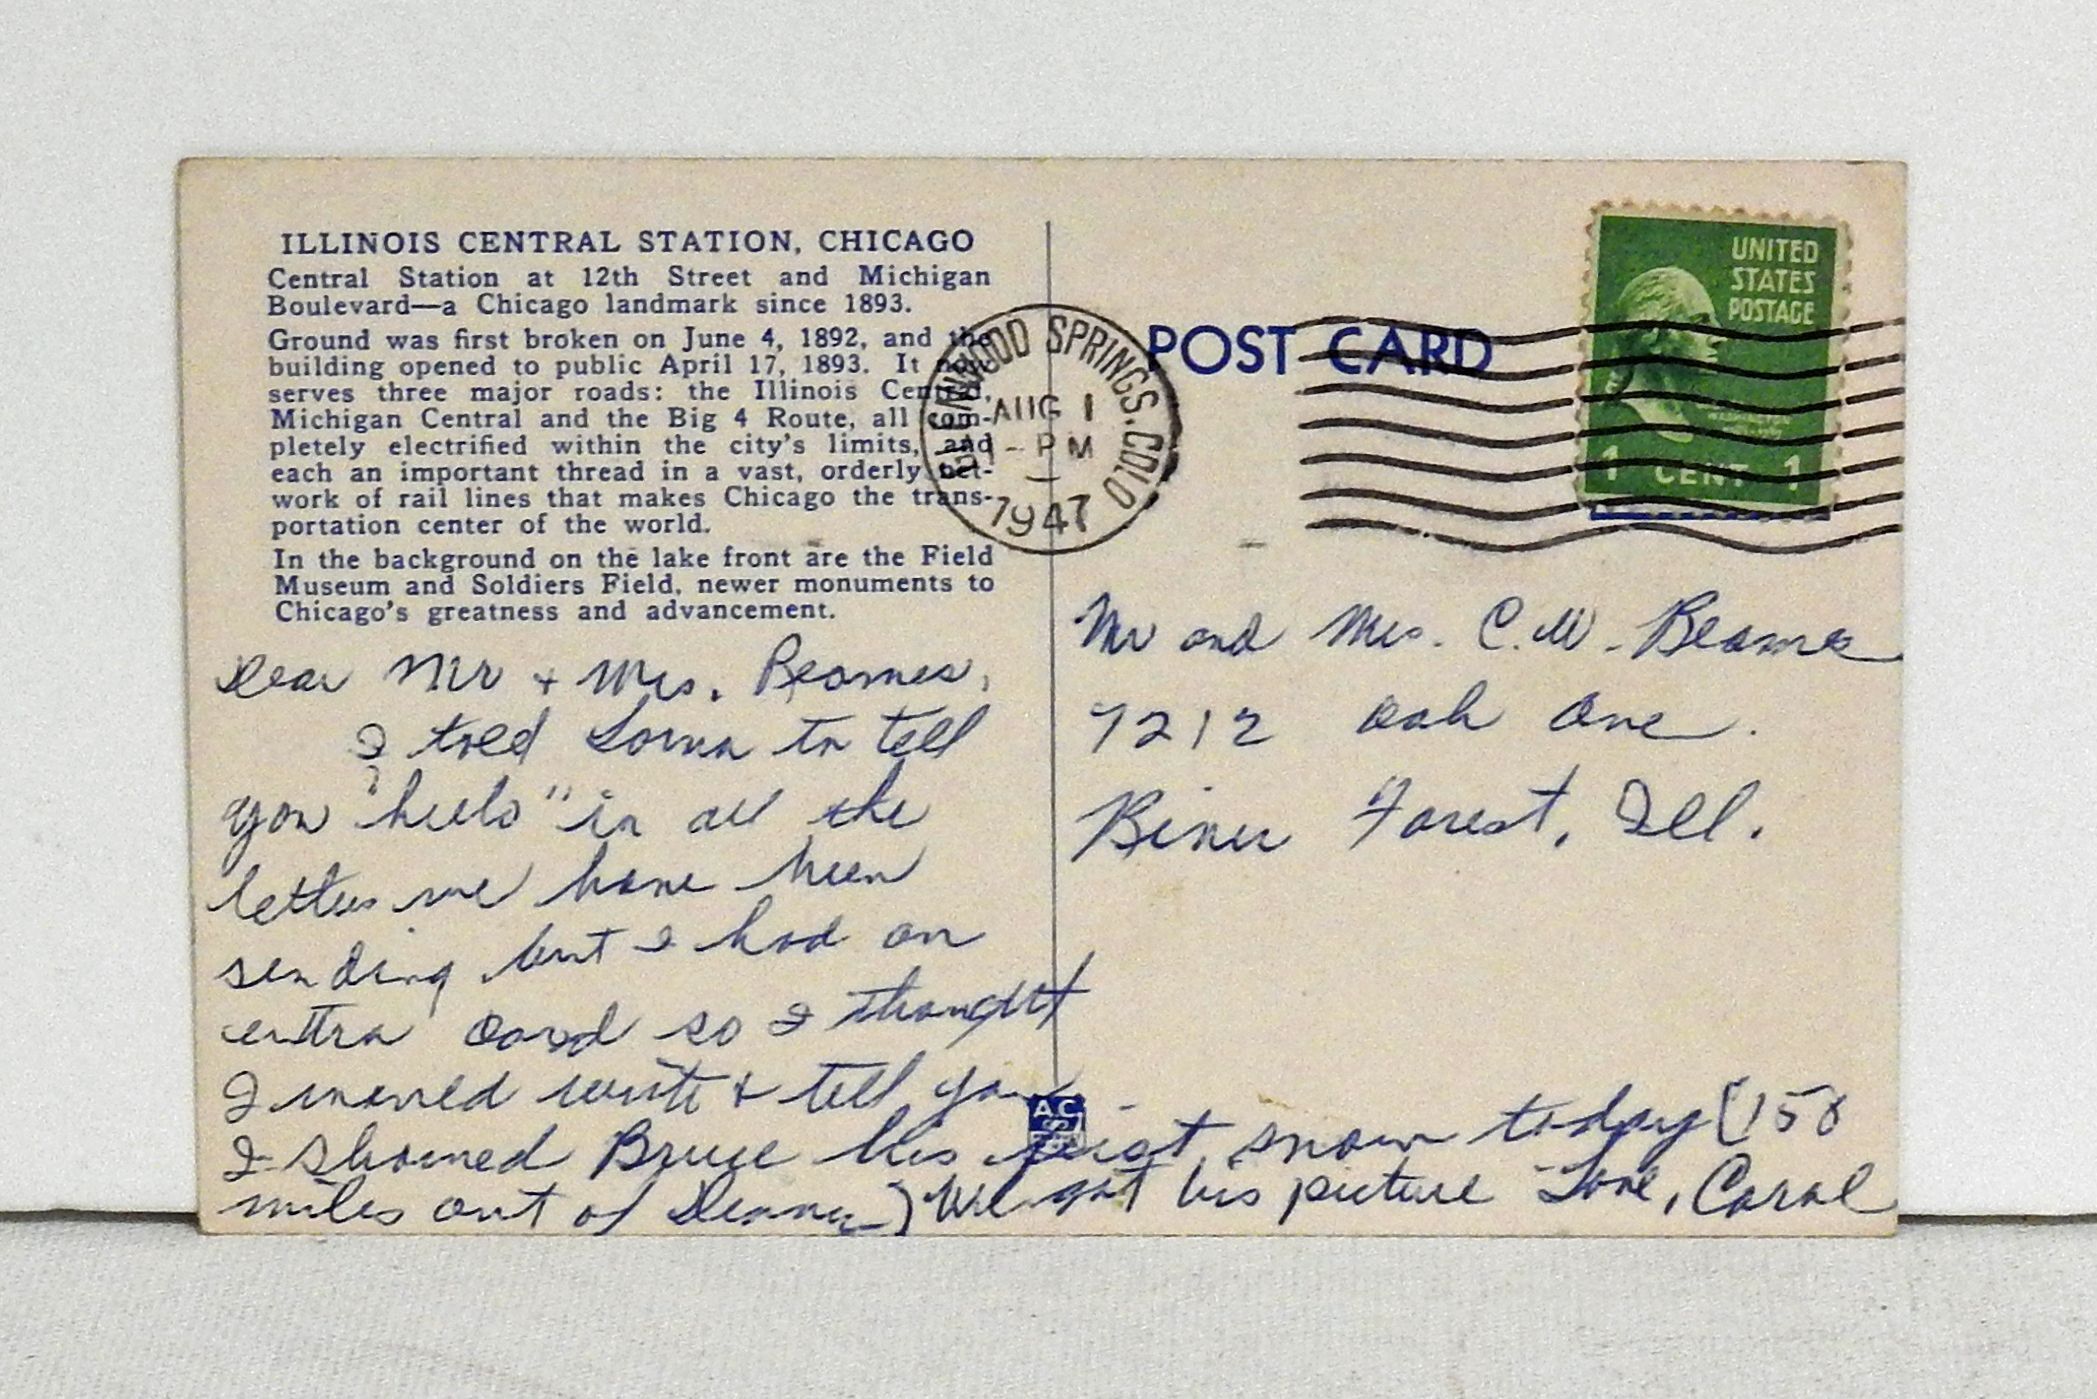 ILLINOIS CENTRAL STATION, CHICAGO
Central Station at 12th Street and Michigan
Boulevard—a Chicago landmark since 1893.
Ground was first broken on June 4, 1892, and the
building opened to public April 17, 1893. It now
serves three major roads: the Illinois Central,
Michigan Central and the Big 4 Route, all com-
pletely electrified within the city's limits, and
each an important thread in a vast, orderly net-
work of rail lines that makes Chicago the trans-
portation center of the world.
In the background on the lake front are the Field
Museum and Soldiers Field, newer monuments to
Chicago's greatness and advancement.
Dear Mr + Mrs. Beames,
I told Lorna to tell
you "hello" in all the
letters we have been
sending but I had an
extra card so I thought
I would write & tell you
I showed Bruce his first snow today (150
miles out of Denver) We got his picture Love, Carol
A.C.
WOOD SPRINGS. COLO
AUG 1
1 - PM
1947
POST CARD
UNITED
STATES
POSTAGE
1 CENT 1
Mr and Mrs. C. W. Beames
7212 Oak Ave.
River Forest, Ill.